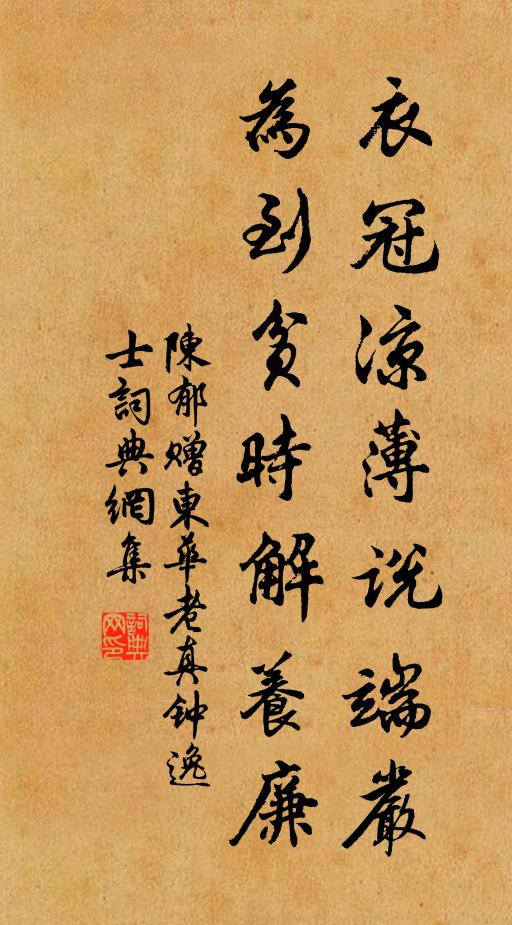 衣冠凉薄説端嚴
為到貧時解養廉
陳郁贈東華老真钟逸
士詞典網集
詞典網印